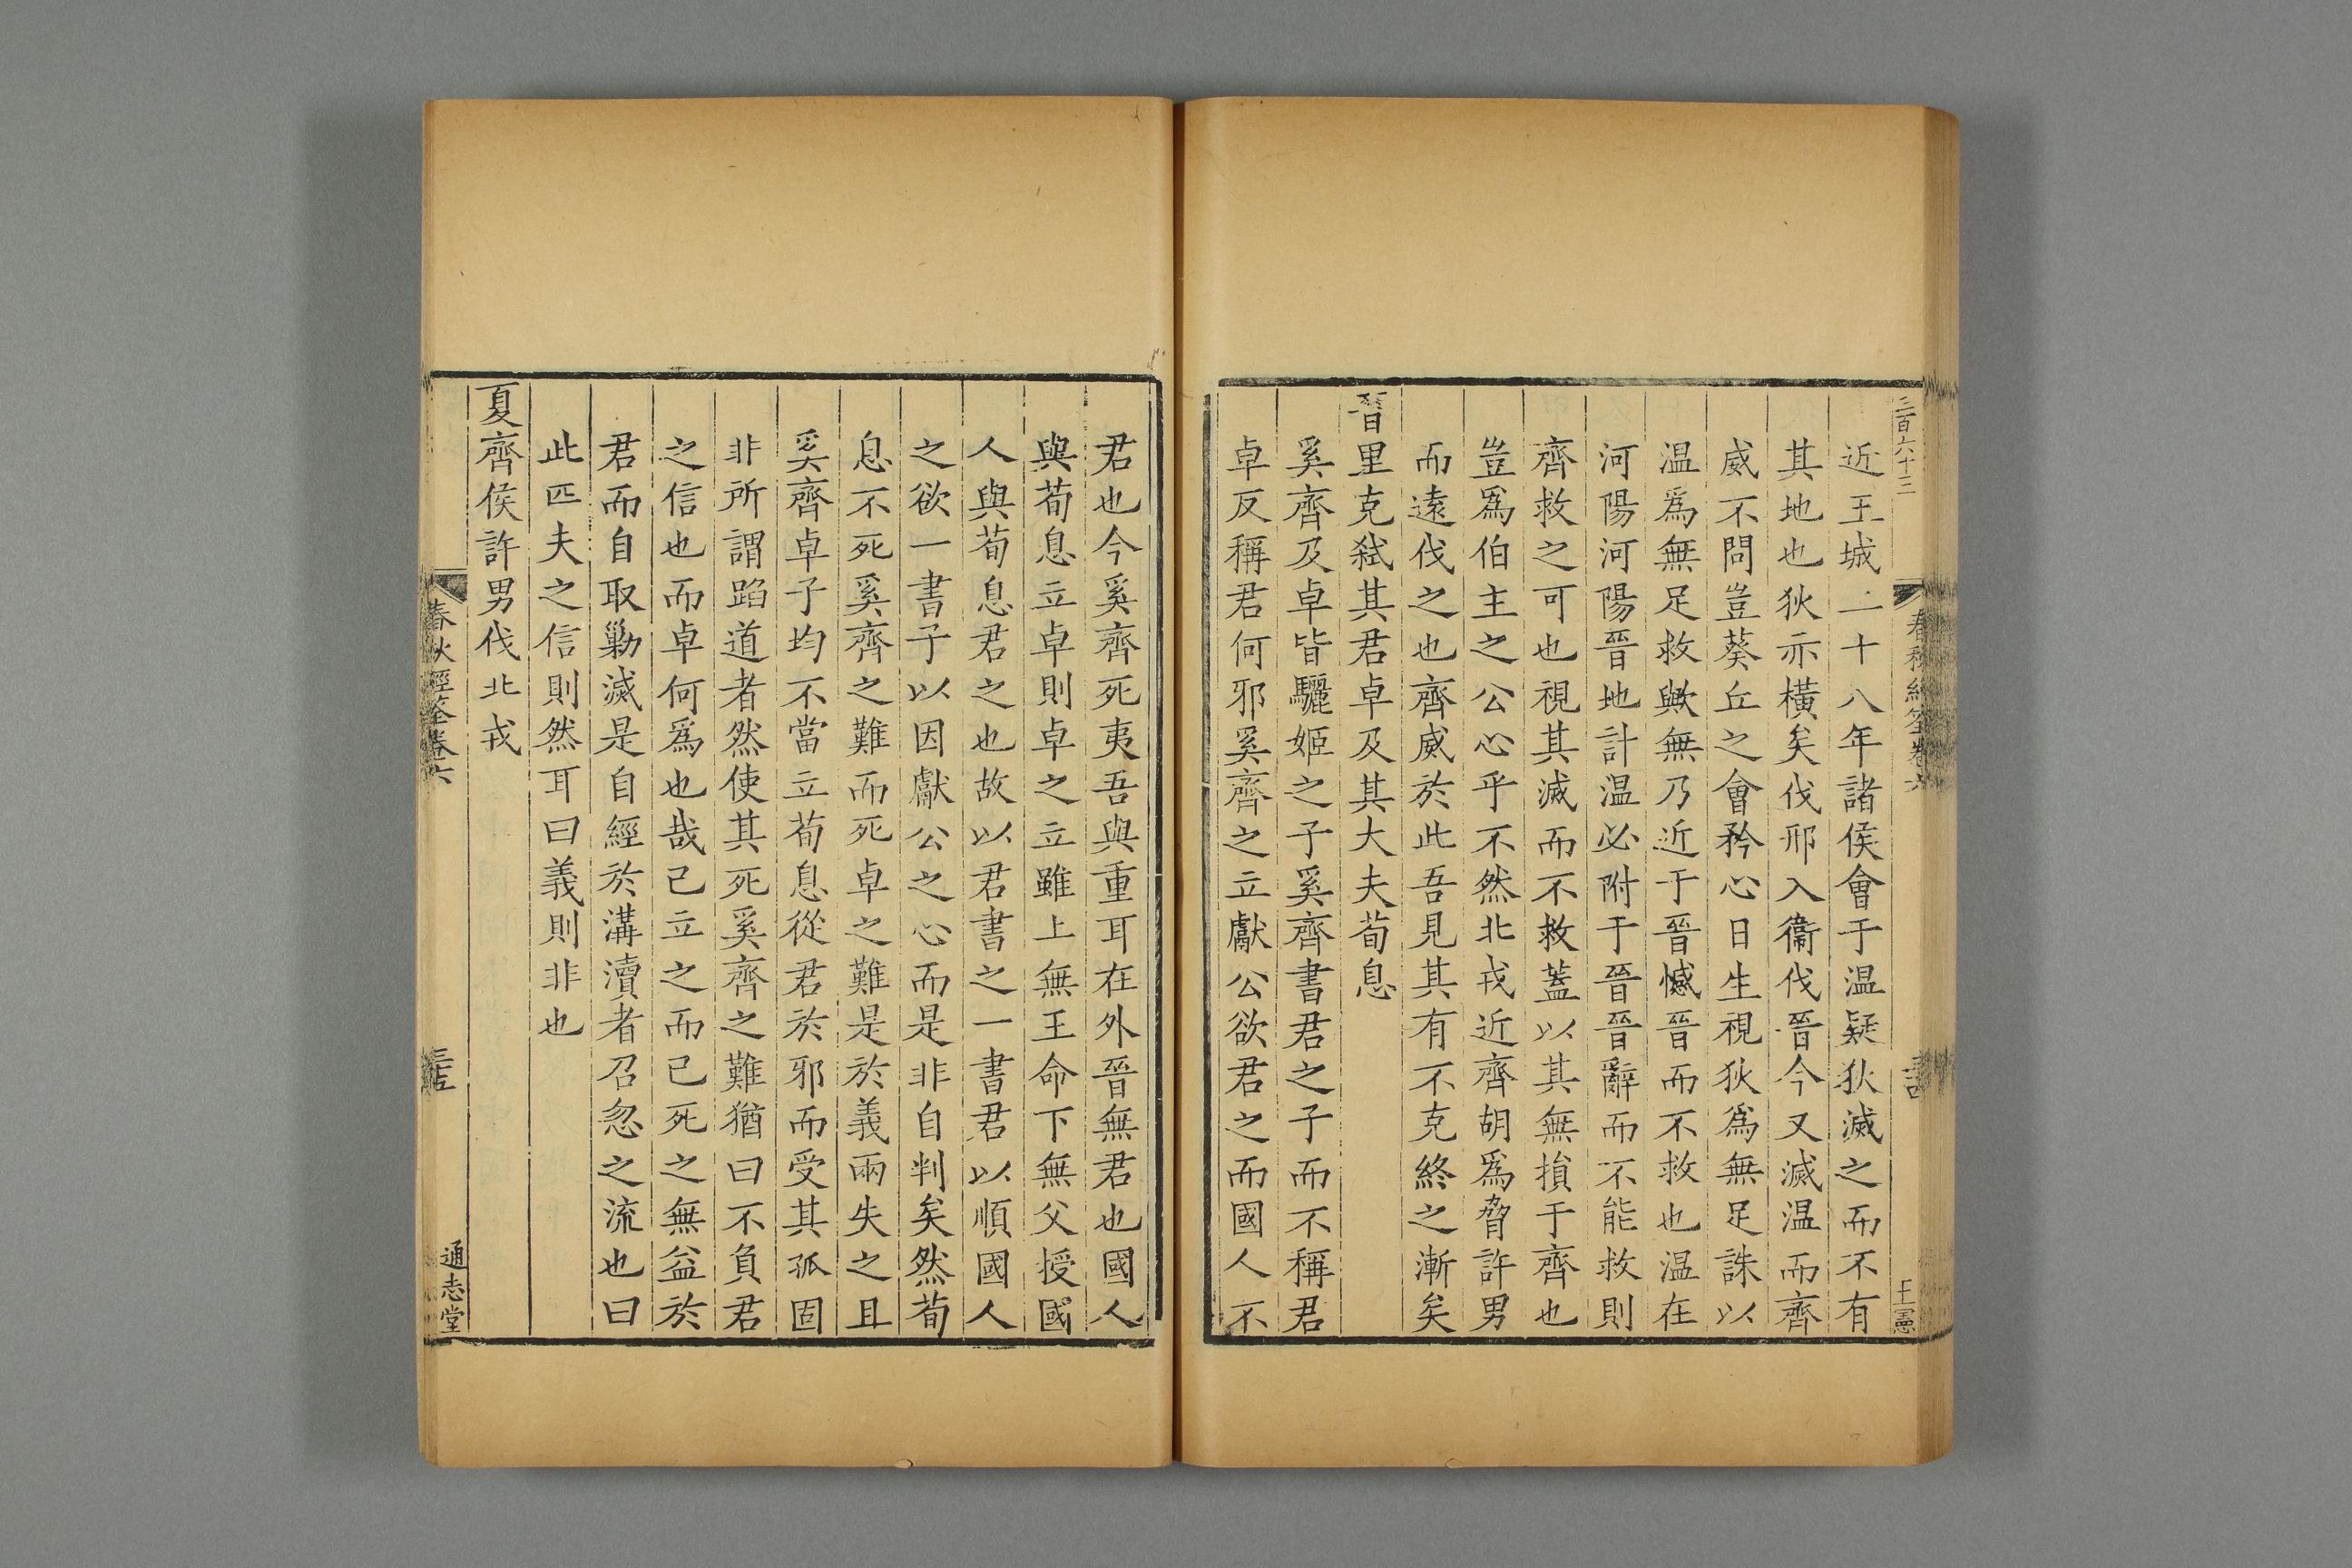 三百六十三
春秋經筌卷六
三十四
王憲
近王城二十八年諸侯會于温疑狄滅之而不有
其地也狄亦横矣伐邢入衞伐晉今又滅温而齊
威不問豈葵丘之會矜心日生視狄爲無足誅以
温爲無足救歟無乃近于晉憾晉而不救也温在
河陽河陽晉地計温必附于晉晉辭而不能救則
齊救之可也視其滅而不救蓋以其無損于齊也
豈爲伯主之公心乎不然北戎近齊胡爲脅許男
而遠伐之也齊威於此吾見其有不克終之漸矣
晉里克弑其君卓及其大夫荀息
奚齊及卓皆驪姬之子奚齊書君之子而不稱君
卓反稱君何邪奚齊之立獻公欲君之而國人不
君也今奚齊死夷吾與重耳在外晉無君也國人
與荀息立卓則卓之立雖上無王命下無父授國
人與荀息君之也故以君書之一書君以順國人
之欲一書子以因獻公之心而是非自判矣然荀
息不死奚齊之難而死卓之難是於義兩失之且
奚齊卓子均不當立荀息從君於邪而受其孤固
非所謂蹈道者然使其死奚齊之難猶曰不負君
之信也而卓何爲也哉己立之而己死之無益於
君而自取勦滅是自經於溝瀆者召忽之流也曰
此匹夫之信則然耳曰義則非也
夏齊侯許男伐北戎
春秋經筌卷六
三十五
通志堂